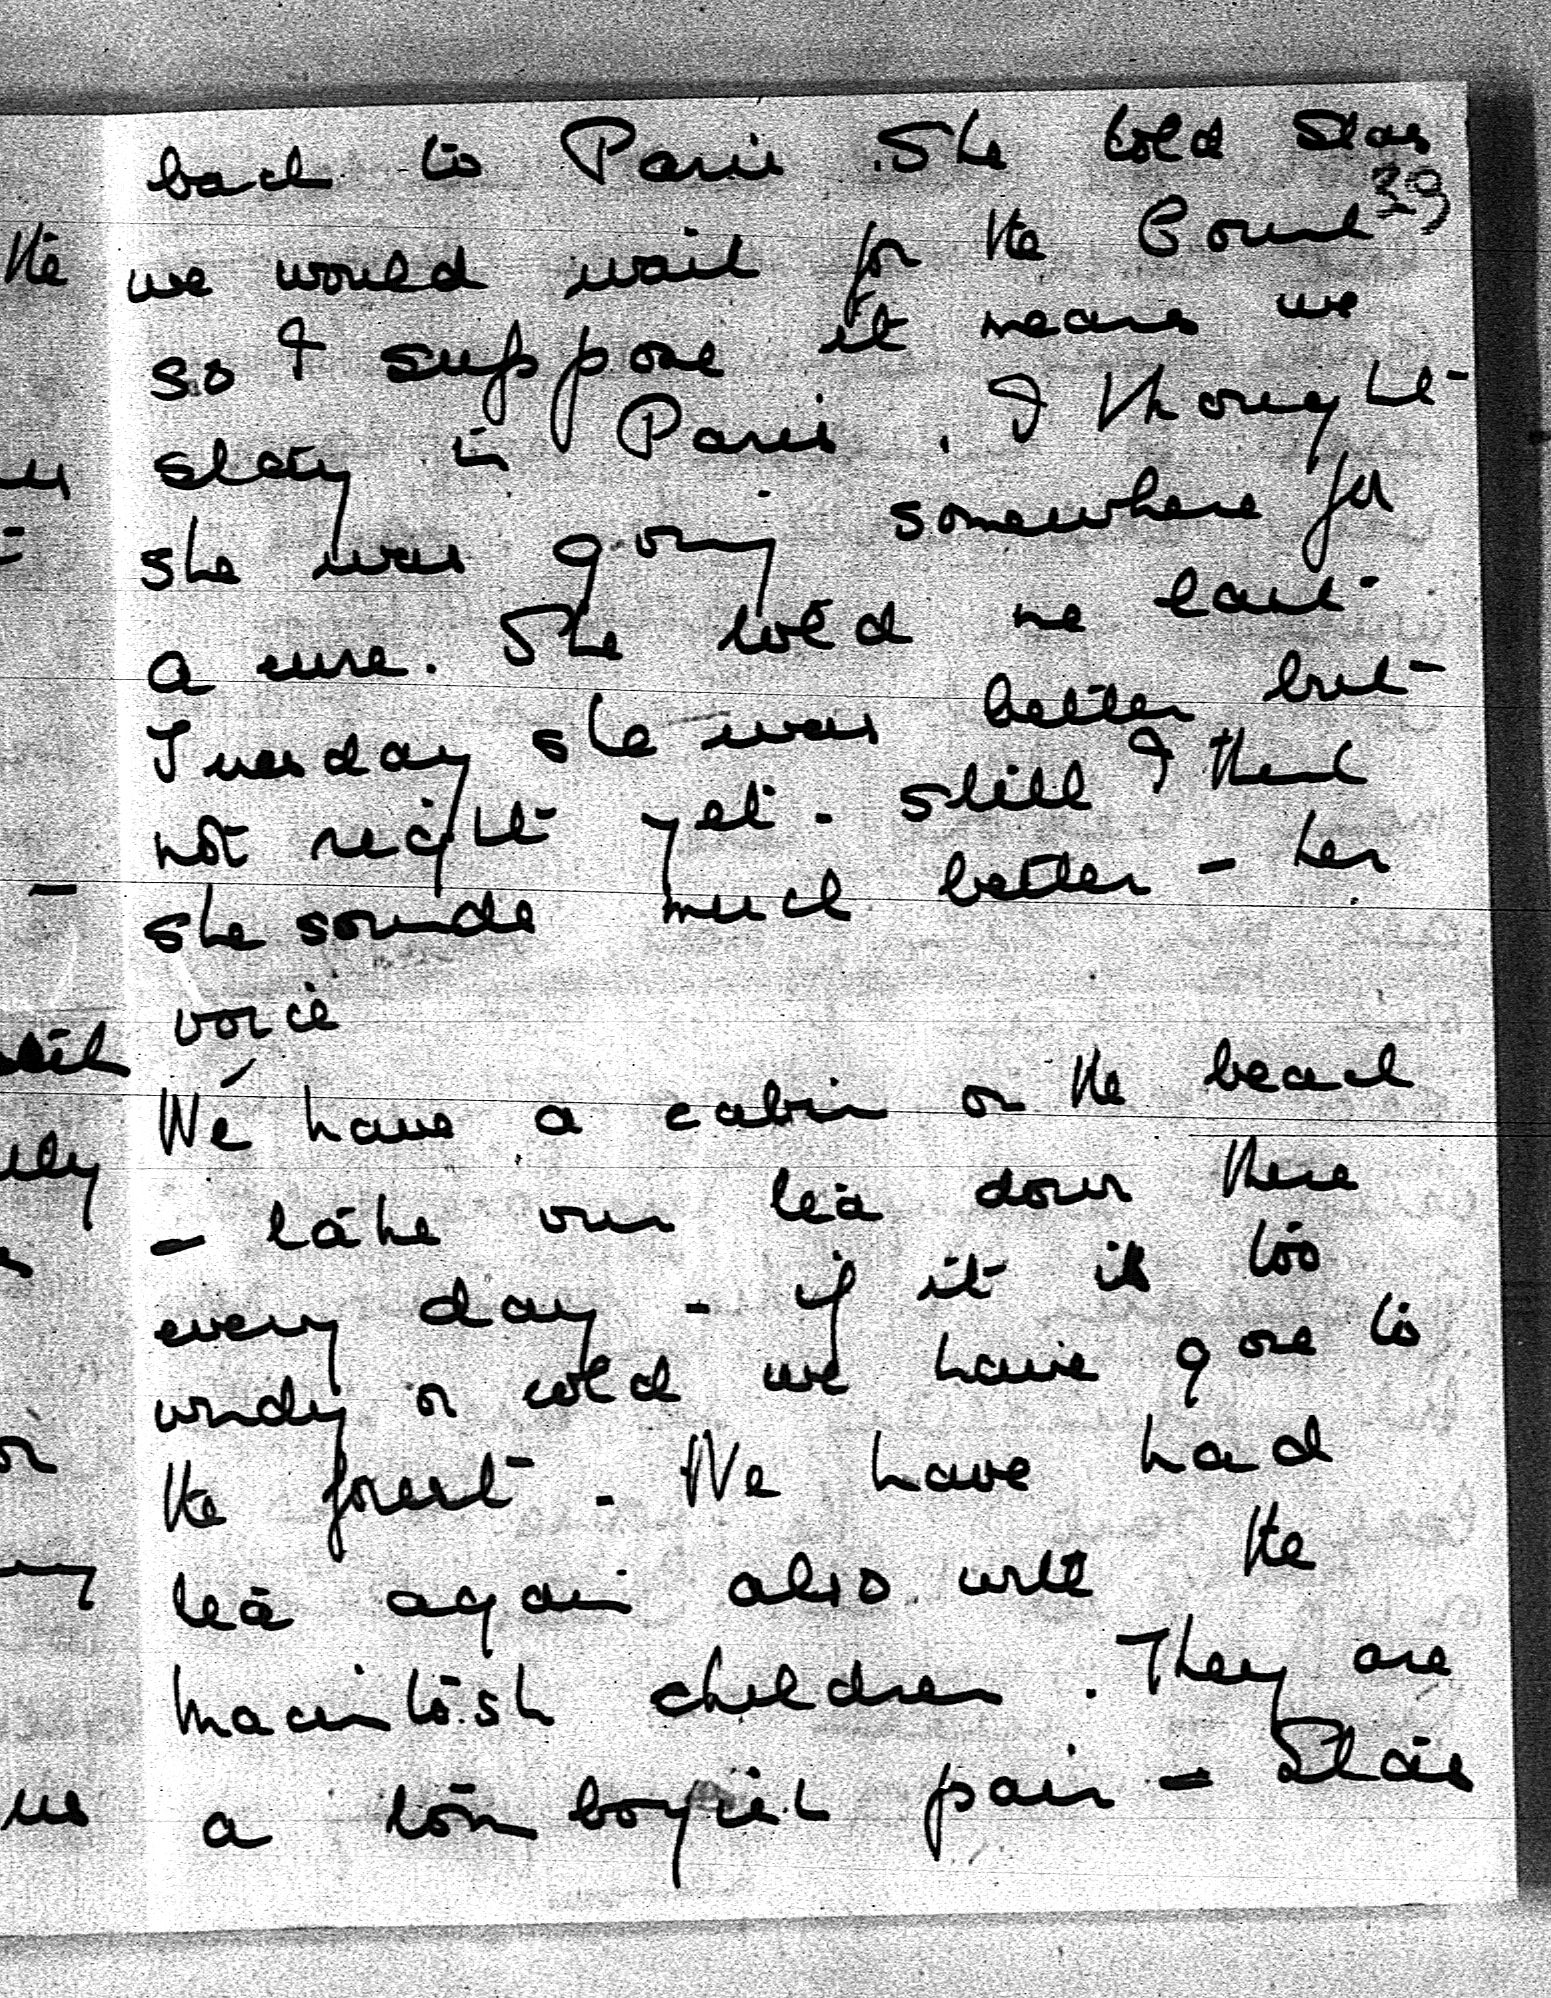 back to Paris. She told Stas
39
we would wait for the Count
so I suppose it means we
stay in Paris. I thought
she was going somewhere for
a cure. She told me last
Tuesday she was better but
not right yet. Still I think
she sounds much better - her
voice
We have a cabin on the beach
- take our tea down there
every day - if it is too
windy or cold we have gone to
the forest. We have had
tea again also with the
Macintosh children. They are
a tomboyish pair - Stas